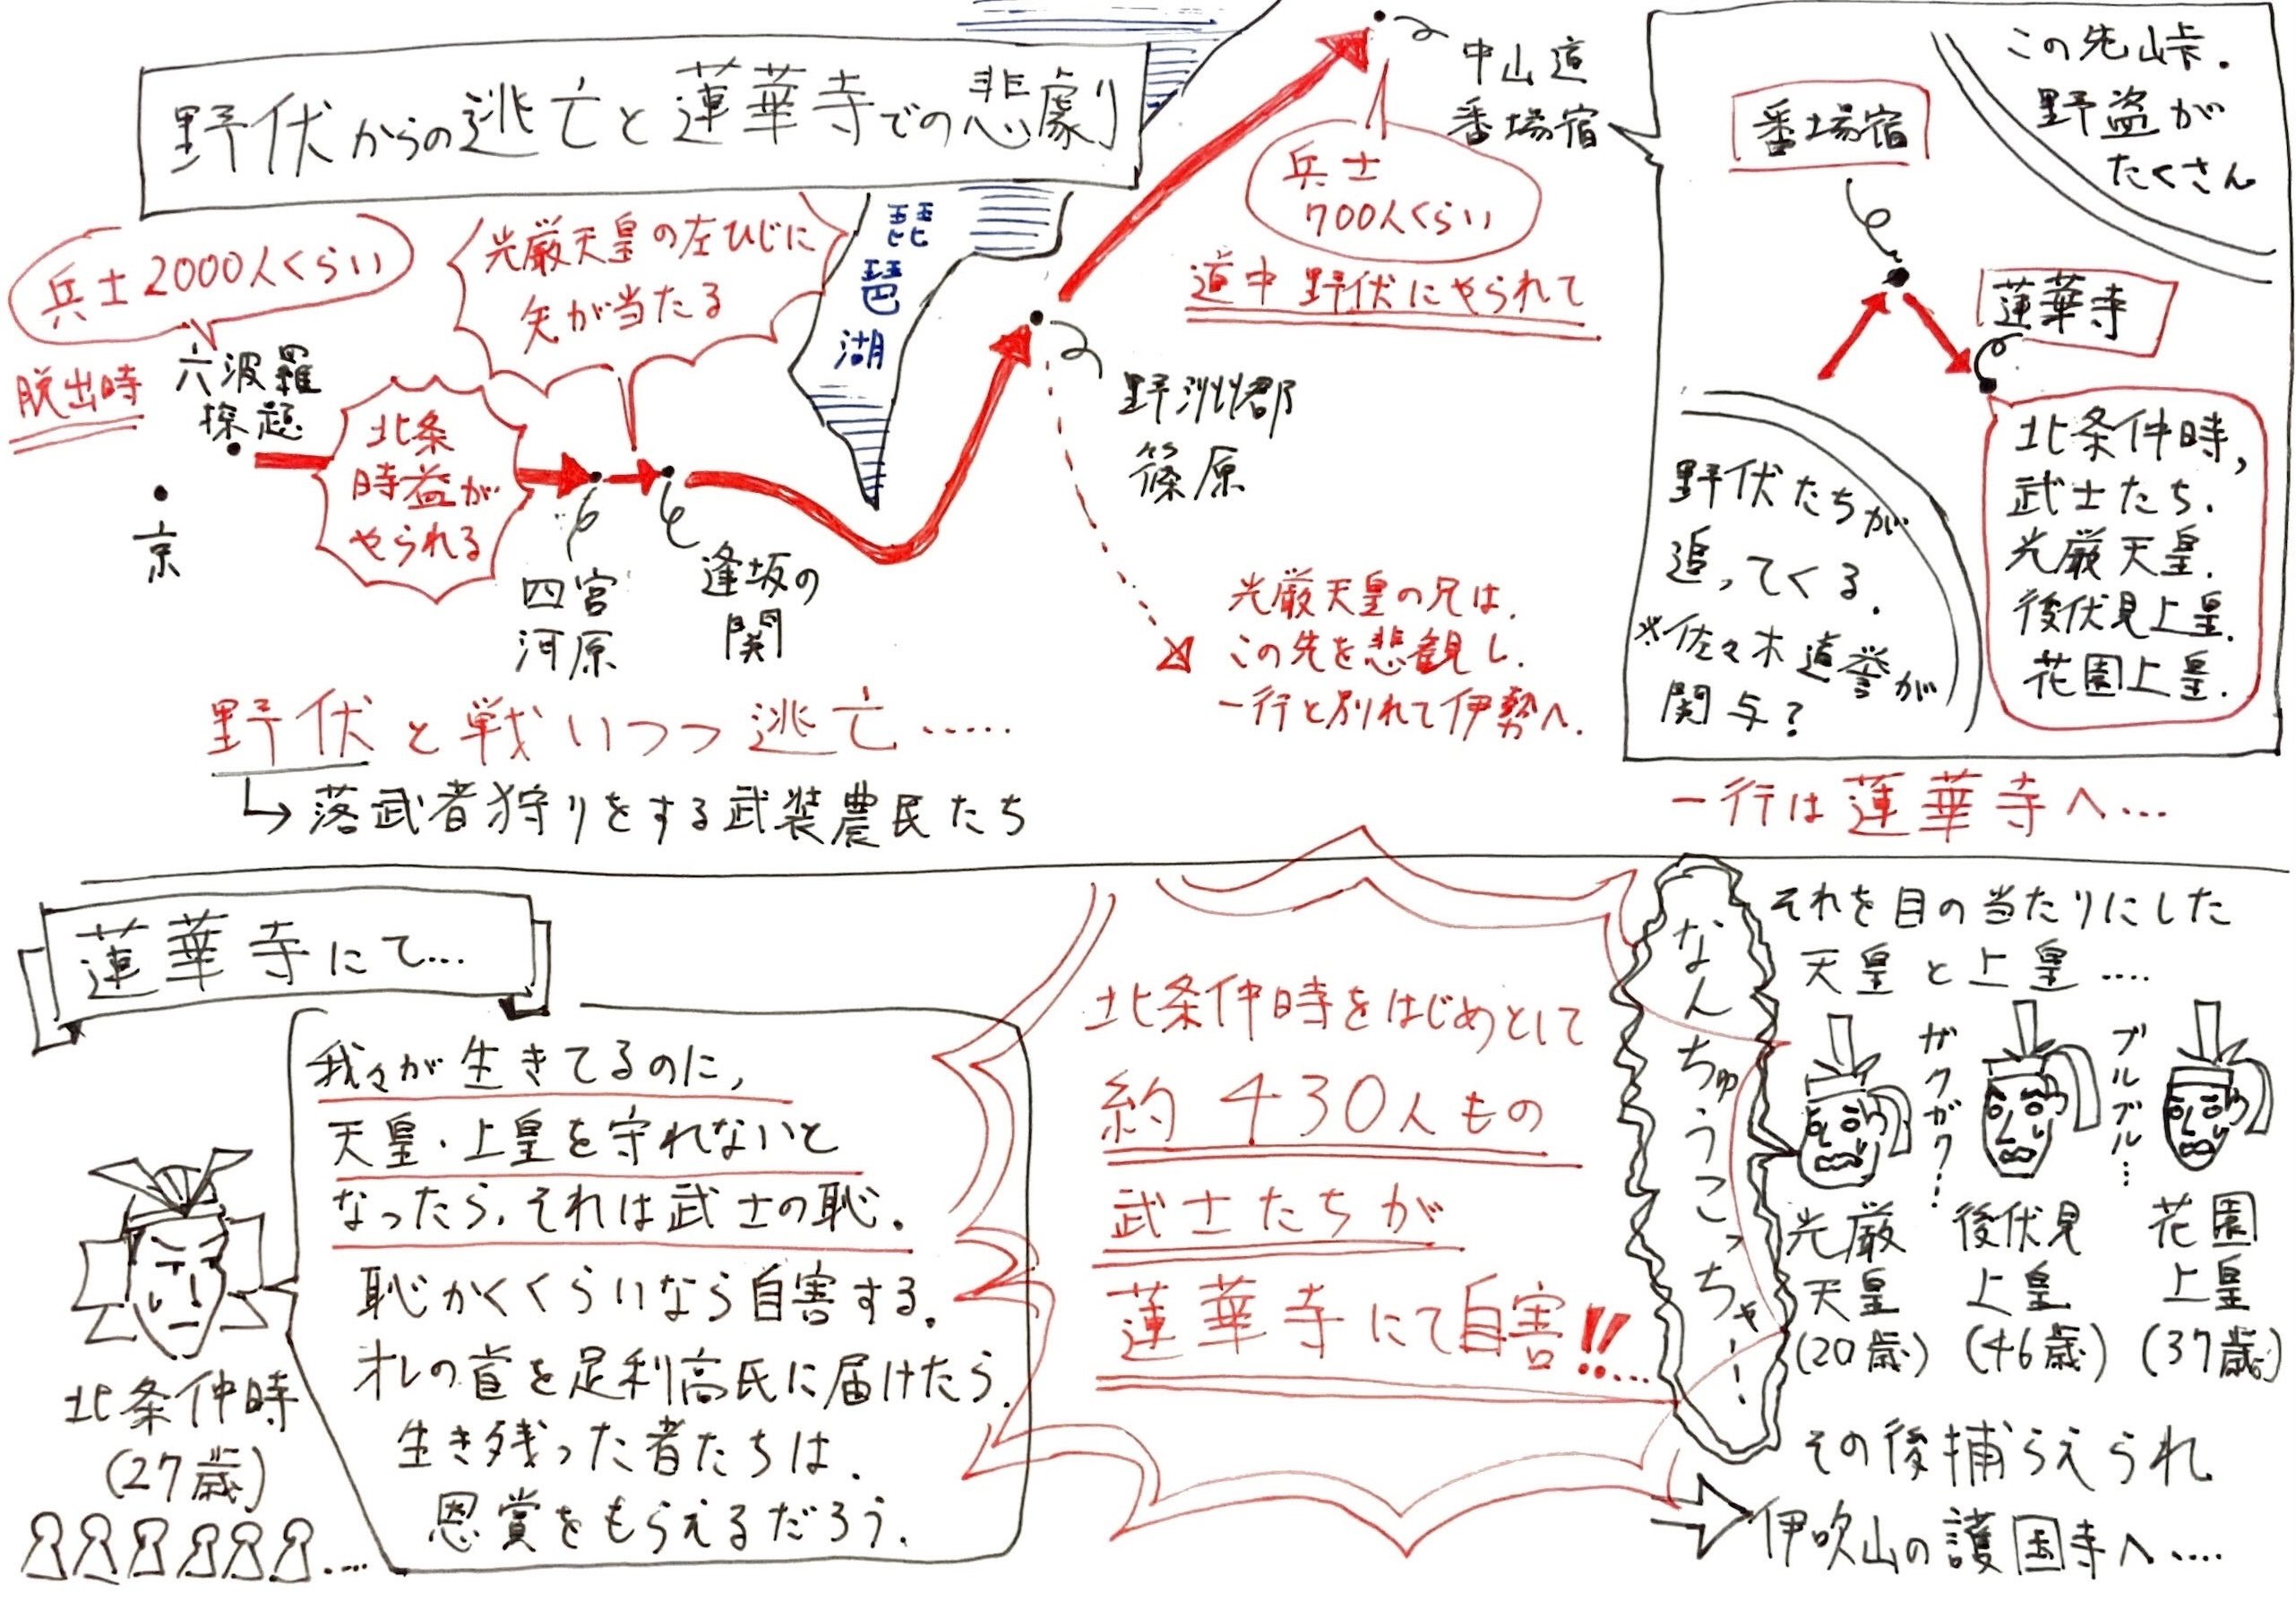 野伏からの逃亡と蓮華寺での悲劇
兵士2000人くらい
脱出時
六波羅
探題
京
北条
時益が
やられる
光厳天皇の左ひじに
矢が当たる
四宮
河原
逢坂の
関
琵
琶
湖
野洲郡
篠原
光厳天皇の兄は、
この先を悲観し、
一行と別れて伊勢へ.
中山道
番場宿
兵士
700人くらい
道中野伏にやられて
野伏と戦いつつ逃亡……
落武者狩りをする武装農民たち
この先山峠.
野盗が
たくさん
番場宿
蓮華寺
北条仲時,
武士たち.
光厳天皇.
後伏見上皇.
花園上皇.
野伏たちが
追ってくる.
※佐々木道誉が
関与?
一行は蓮華寺へ…
蓮華寺にて…
我々が生きてるのに,
天皇・上皇を守れないと
なったら,それは武士の恥.
恥かくくらいなら自害する.
オレの首を足利高氏に届けたら,
生き残った者たちは,
恩賞をもらえるだろう.
北条仲時
(27歳)
北条仲時をはじめとして
約430人もの
武士たちが
蓮華寺にて自害!!…
なんちゅうこっちゃー!
それを目の当たりにした
天皇と上皇….
ガクガク…
ブルブル…
光厳
天皇
(20歳)
後伏見
上皇
(46歳)
花園
上皇
(37歳)
その後捕らえられ
伊吹山の護国寺へ….